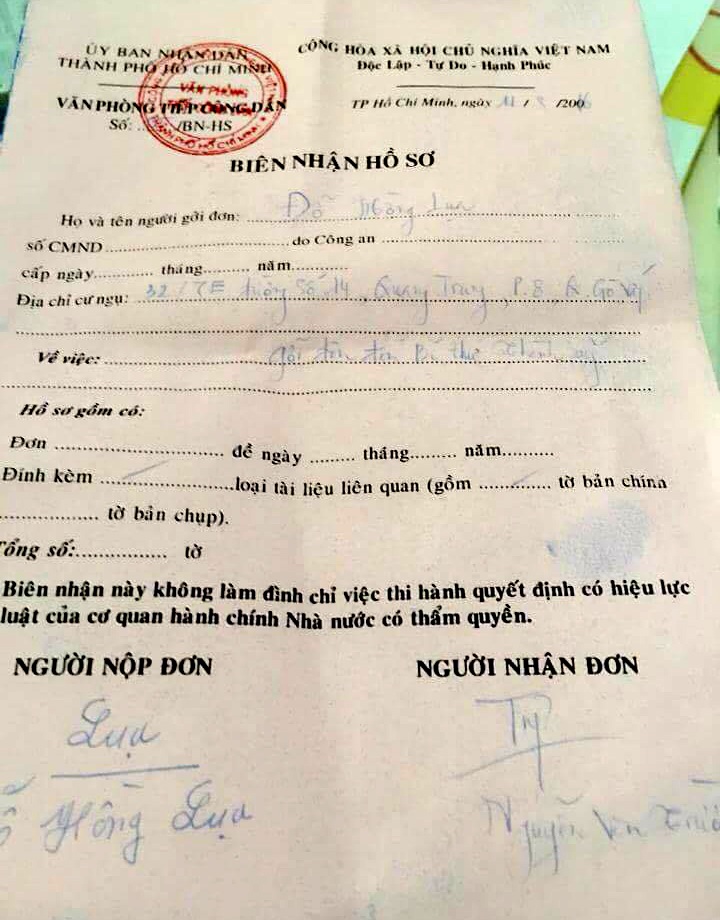 ỦY BAN NHÂN DÂN
THÀNH PHỐ HỒ CHÍ MINH
VĂN PHÒNG TIẾP CÔNG DÂN
Số: .../BN-HS
CỘNG HÒA XÃ HỘI CHỦ NGHĨA VIỆT NAM
Độc Lập - Tự Do - Hạnh Phúc
TP Hồ Chí Minh, ngày 11 / / 200
VĂN PHÒNG
BIÊN NHẬN HỒ SƠ
Họ và tên người gởi đơn: Đỗ Hồng Lụa
số CMND do Công an
cấp ngày tháng năm
Địa chỉ cư ngụ: 32/7E đường Số 14, Quang Trung, P.8, Q. Gò Vấp
Về việc: gởi đơn đến Bí thư thành ủy
Hồ sơ gồm có:
Đơn đề ngày tháng năm
Đính kèm loại tài liệu liên quan (gồm tờ bản chính
tờ bản chụp).
Tổng số: tờ
Biên nhận này không làm đình chỉ việc thi hành quyết định có hiệu lực
luật của cơ quan hành chính Nhà nước có thẩm quyền.
NGƯỜI NỘP ĐƠN
NGƯỜI NHẬN ĐƠN
Lụa
Hồng Lụa
Nguyễn Văn